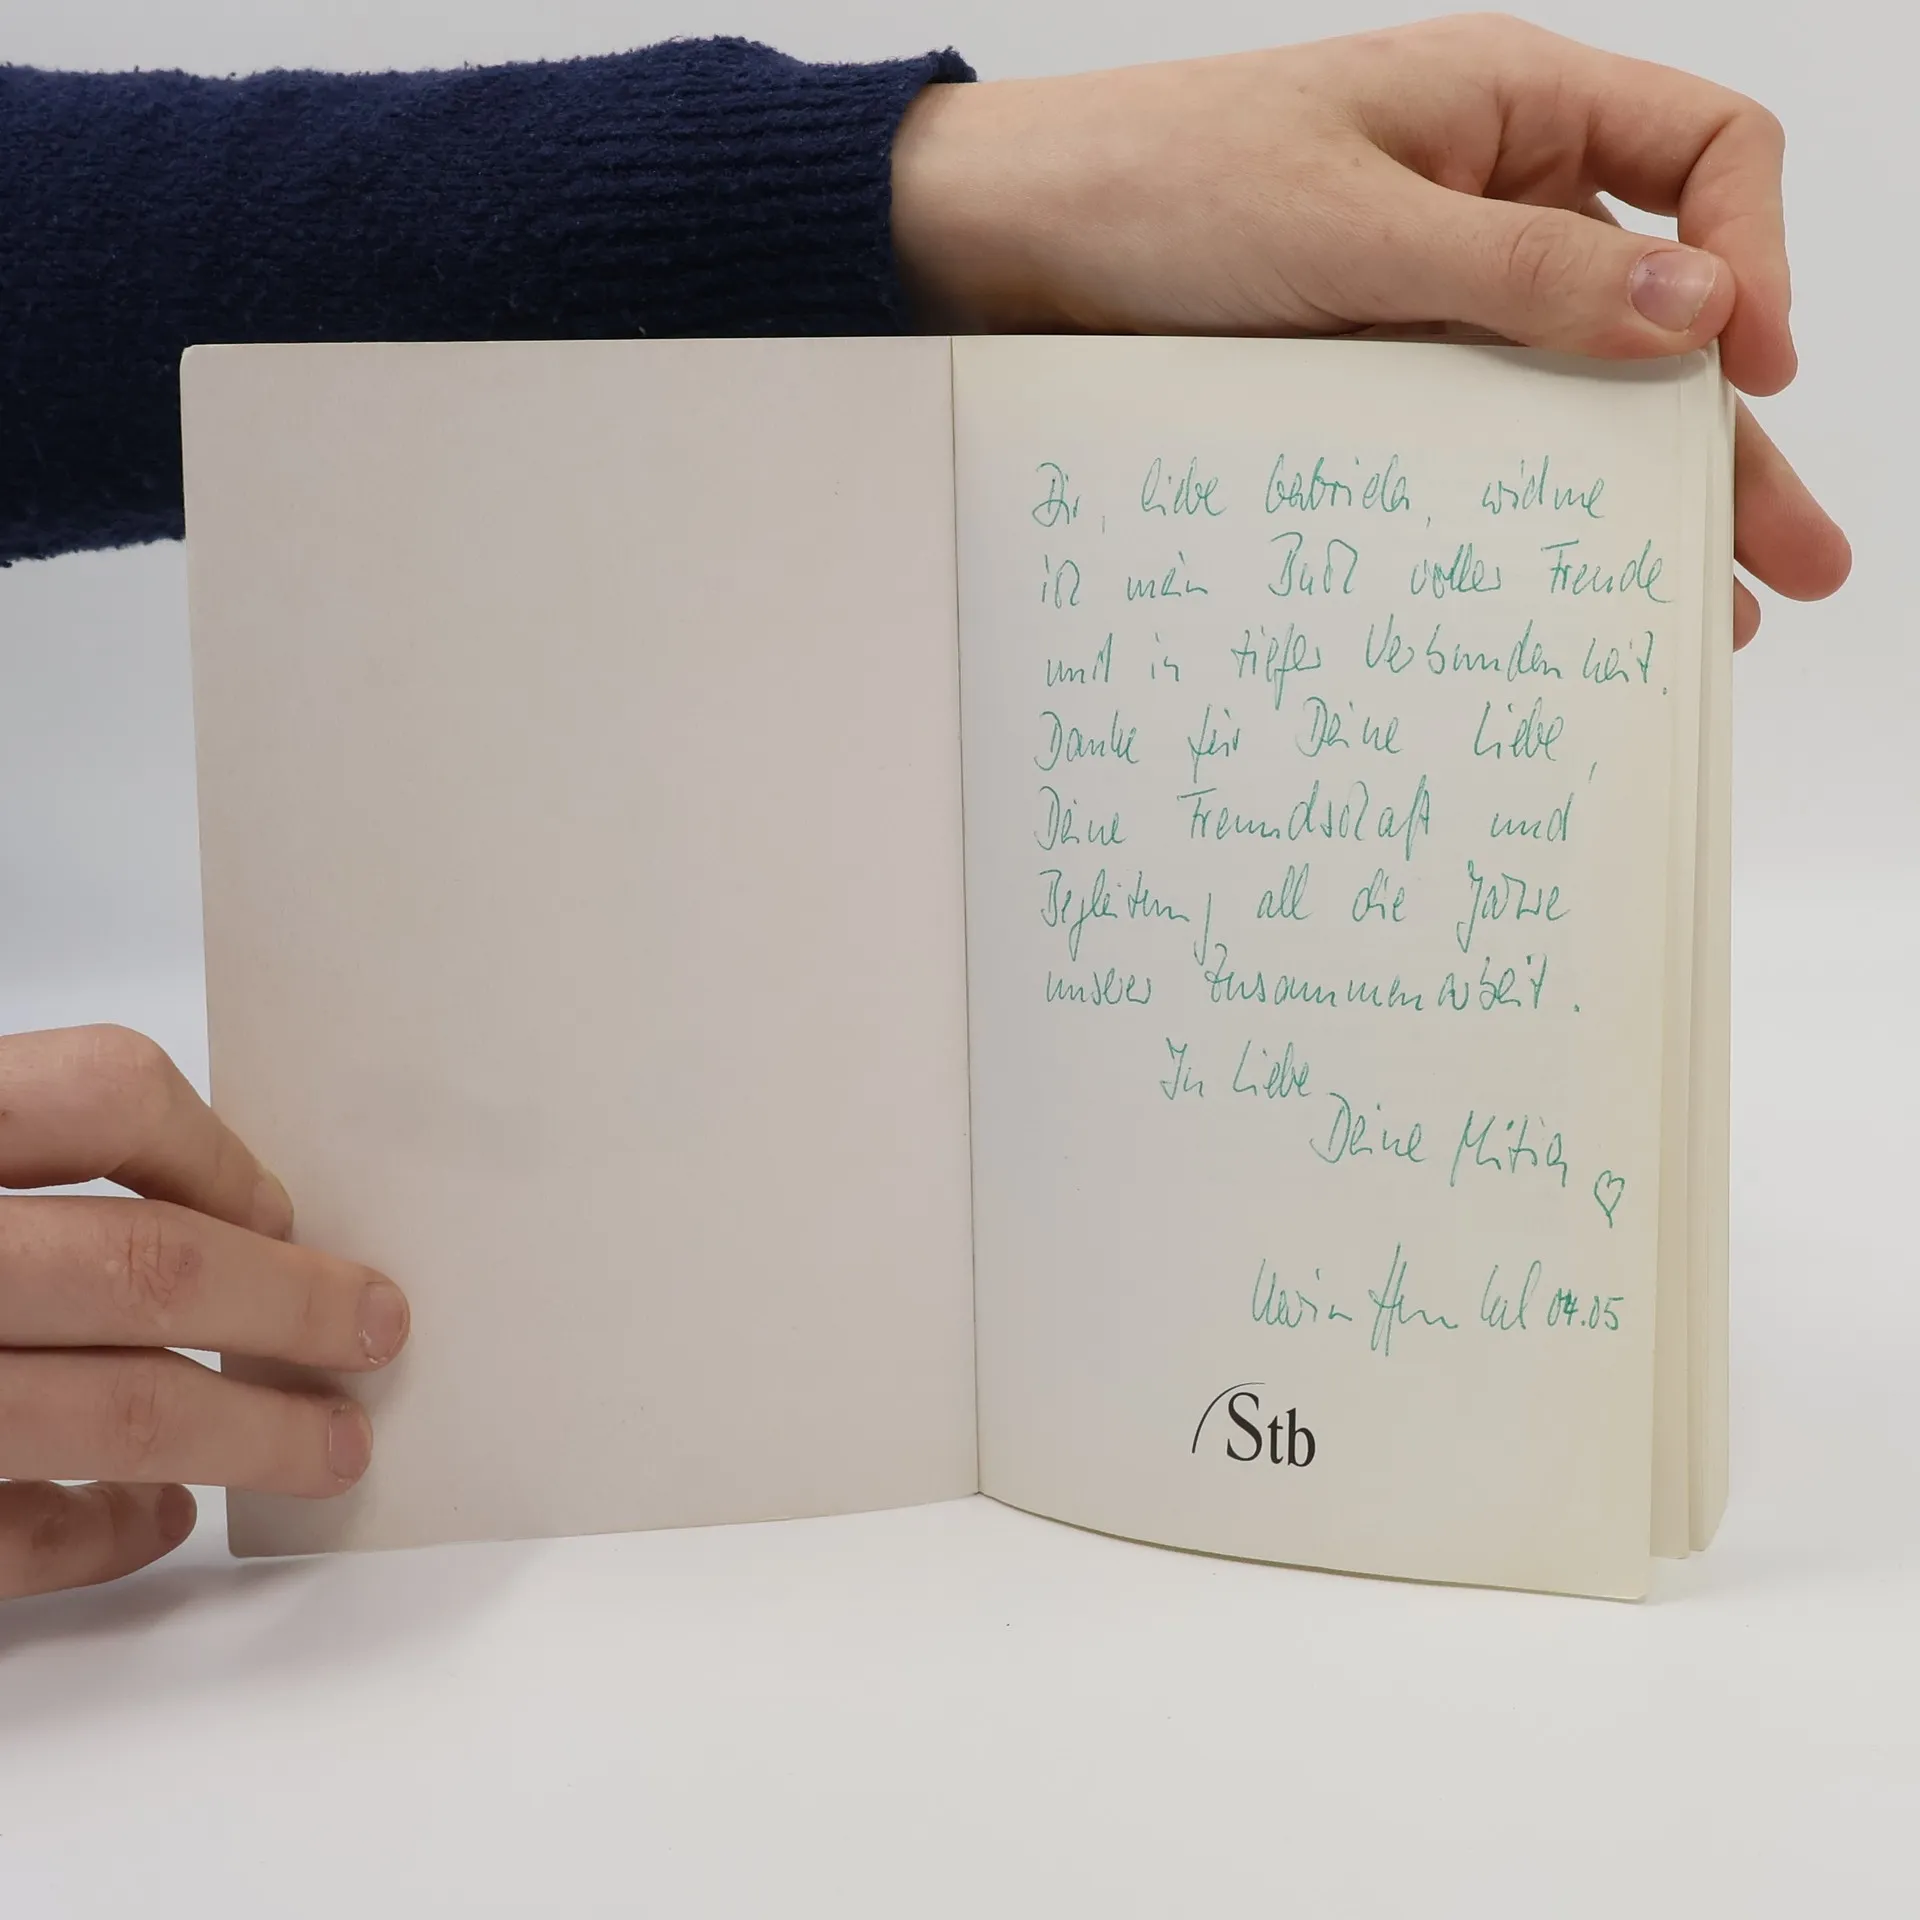 Dir, liebe Gabriela, widme
ich mein Buch voller Freude
und in tiefer Verbundenheit.
Danke für Deine Liebe,
Deine Freundschaft und
Begleitung all die Jahre
unserer Zusammenarbeit.
In Liebe
Deine
04.05
Stb